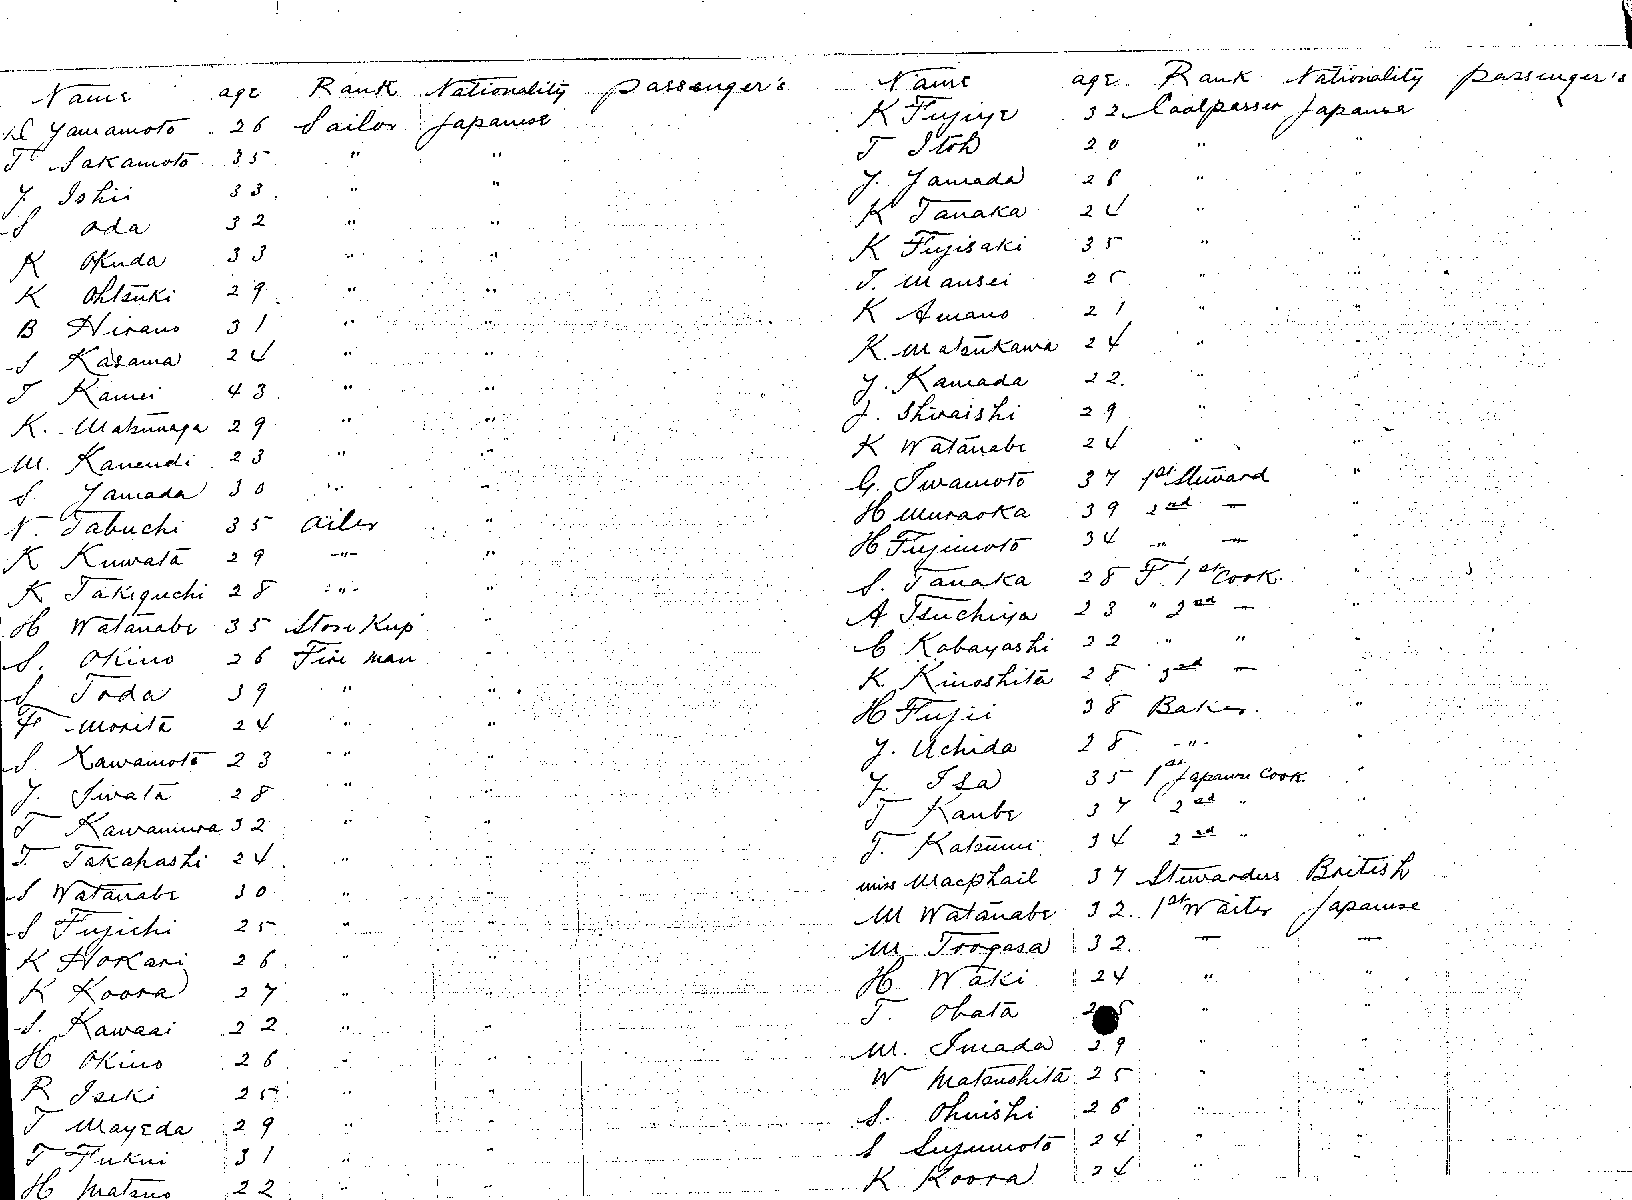 Name age Rank Nationality passenger's
Yamamoto 26 Sailor Japanese
T Sakamoto 35 " "
Y. Ishii 33 " "
S Oda 32 " "
K Okuda 33 " "
K Ohtsuki 29 " "
B Hirano 31 " "
S Kasama 24 " "
T Kamei 43 " "
K. Matsunaga 29 " "
M. Kanendi 23 " "
S. Yamada 30 " "
N. Tabuchi 35 Oiler "
K Kuwata 29 " "
K Takiguchi 28 "
H Watanabe 35 Store Kup "
S. Okino 26 Fire man "
S Toda 39 " "
F Morita 24 " "
S. Kawamoto 23 " "
Y. Iwata 28 " "
T Kawamura 32 " "
T. Takahashi 24 " "
S Watanabe 30 " "
S Fujichi 25 " "
K Hokari 26 " "
K Koora 27 " "
S. Kawaai 22 " "
H Okino 26 " "
R Iseki 25 " "
T Mayeda 29 " "
T Fukui 31 " "
H Matsuo 22 " "
Name age Rank Nationality passenger's
K Fujiye 32 Coalpasser Japanese
T Itoh 20 " "
Y. Yamada 26 " "
K Tanaka 24 " "
K Fujisaki 35 " "
T. Mansei 25 " "
K Amano 21 " "
K. Matsukawa 24 " "
Y. Kamada 22. " "
J. Shiraishi 29 " "
K Watanabe 24 " "
G. Iwamoto 37 1st Steward "
H Muraoka 39 2nd — "
H Fujimoto 34 " — "
S. Tanaka 28 F. 1st Cook. "
A Tsuchiya 23 " 2nd — "
C Kobayashi 22 " " "
K Kinoshita 28 3rd — "
H Fujii 38 Baker. "
Y. Uchida 28 " "
Y. Isa 35 1st Japanese Cook "
T Kanbe 37 2nd " "
T. Katsumi 34 2nd " "
Miss Macphail 37 Stewardess British
M Watanabe 32. 1st Waiter Japanese
M. Trogasa 32. — —
H Waki 24 " "
T. Obata " "
M. Imada 29 " "
W Matsushita 25 " "
S. Ohnishi 26 " "
S Susumoto 24 " "
K Koora 24 " "